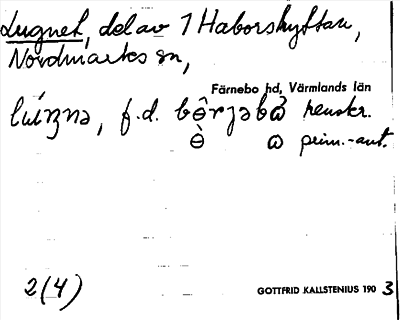 Lugnet, del av 1 Haborshyttan,
Nordmarks sn,
Färnebo hd, Värmlands län
f.d. renskr.
prim.-ant.
2(4)
GOTTFRID KALLSTENIUS 190 3